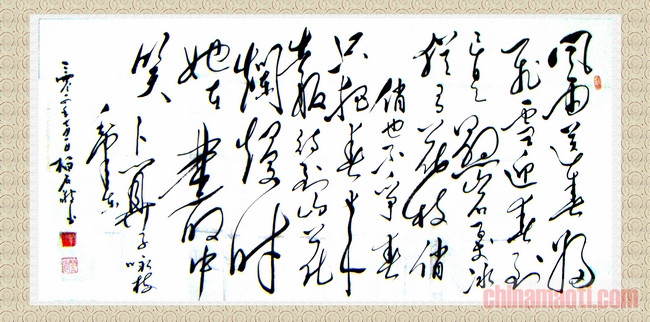 風雨送春歸
飛雪迎春到
已是懸岩萬丈冰
猶有花枝俏
俏也不爭春
只把春來
報待到山花
爛漫時
她在
叢中
笑
卜算子 咏梅
毛澤東
chinamaoti.com